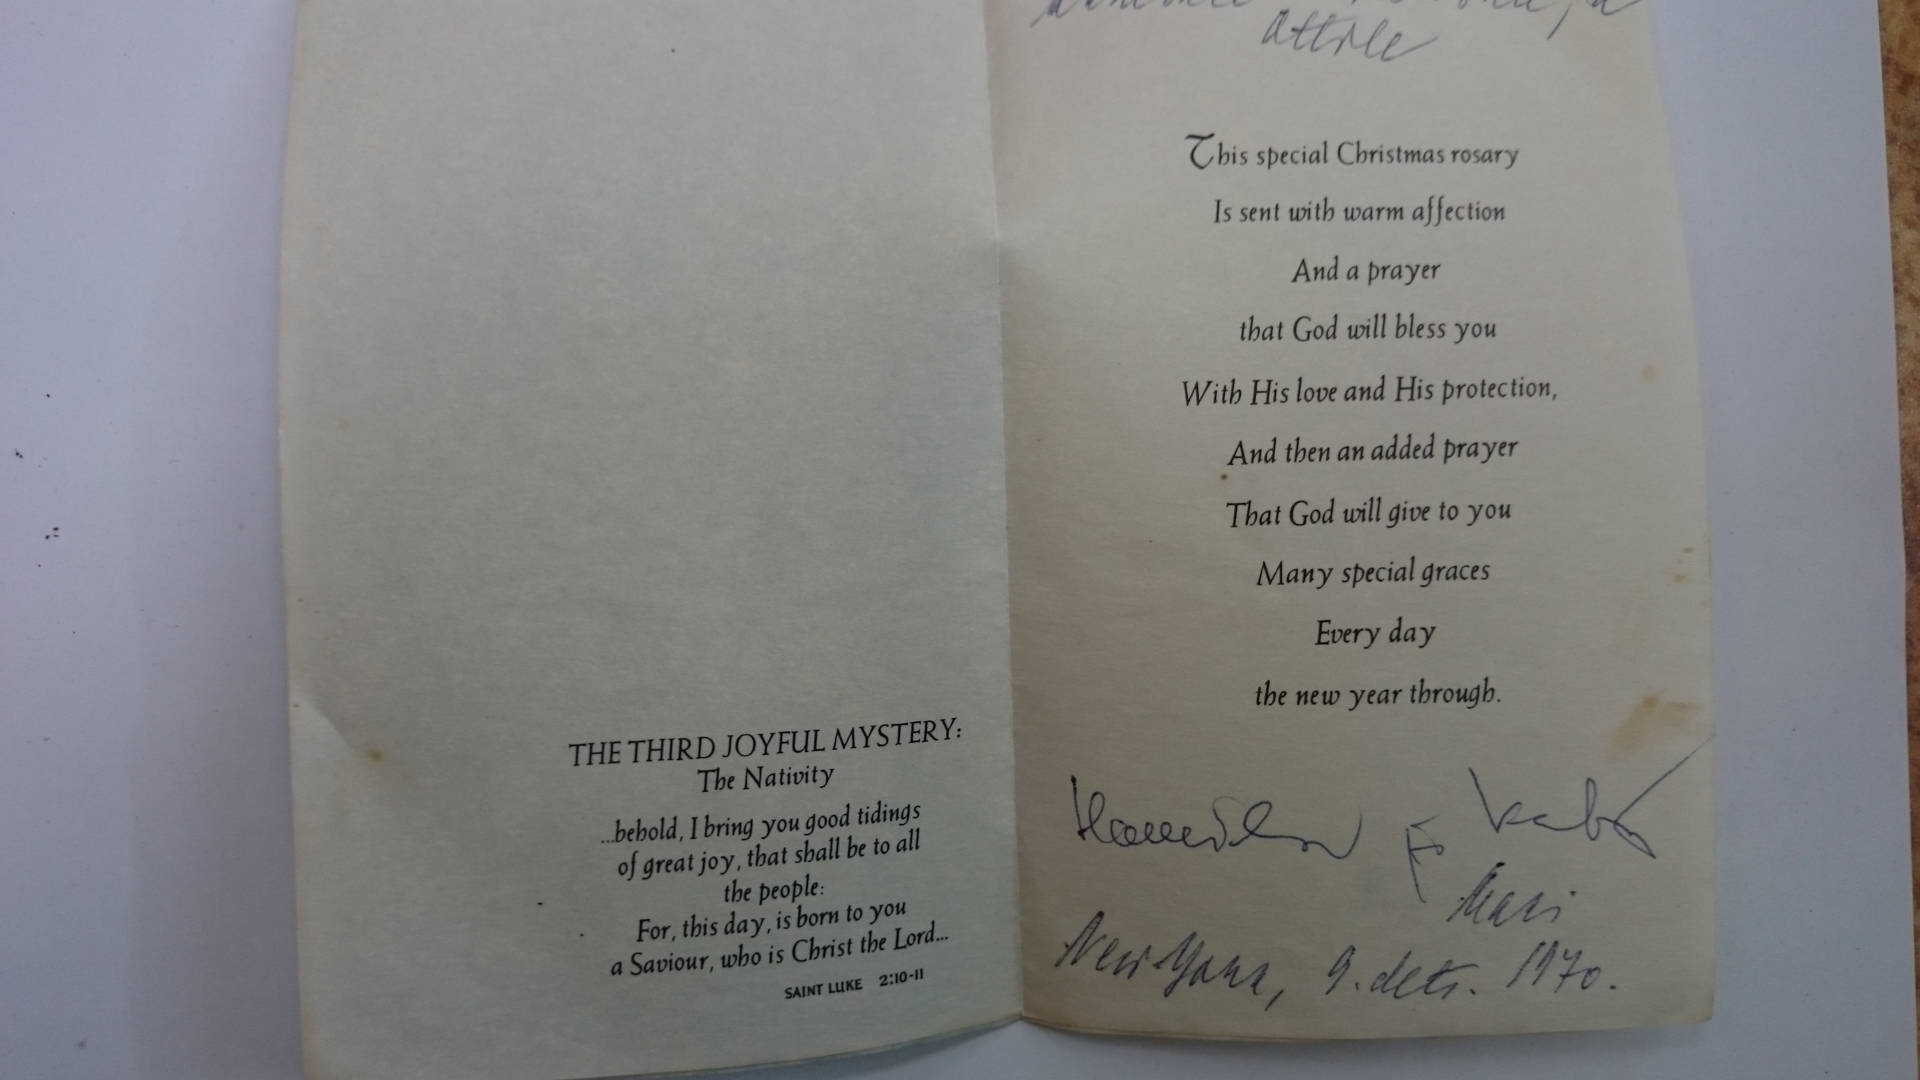 THE THIRD JOYFUL MYSTERY:
The Nativity
...behold, I bring you good tidings
of great joy, that shall be to all
the people:
For, this day, is born to you
a Saviour, who is Christ the Lord...
SAINT LUKE 2:10-11
This special Christmas rosary
Is sent with warm affection
And a prayer
that God will bless you
With His love and His protection,
And then an added prayer
That God will give to you
Many special graces
Every day
the new year through.
New York, 9. dets. 1970.